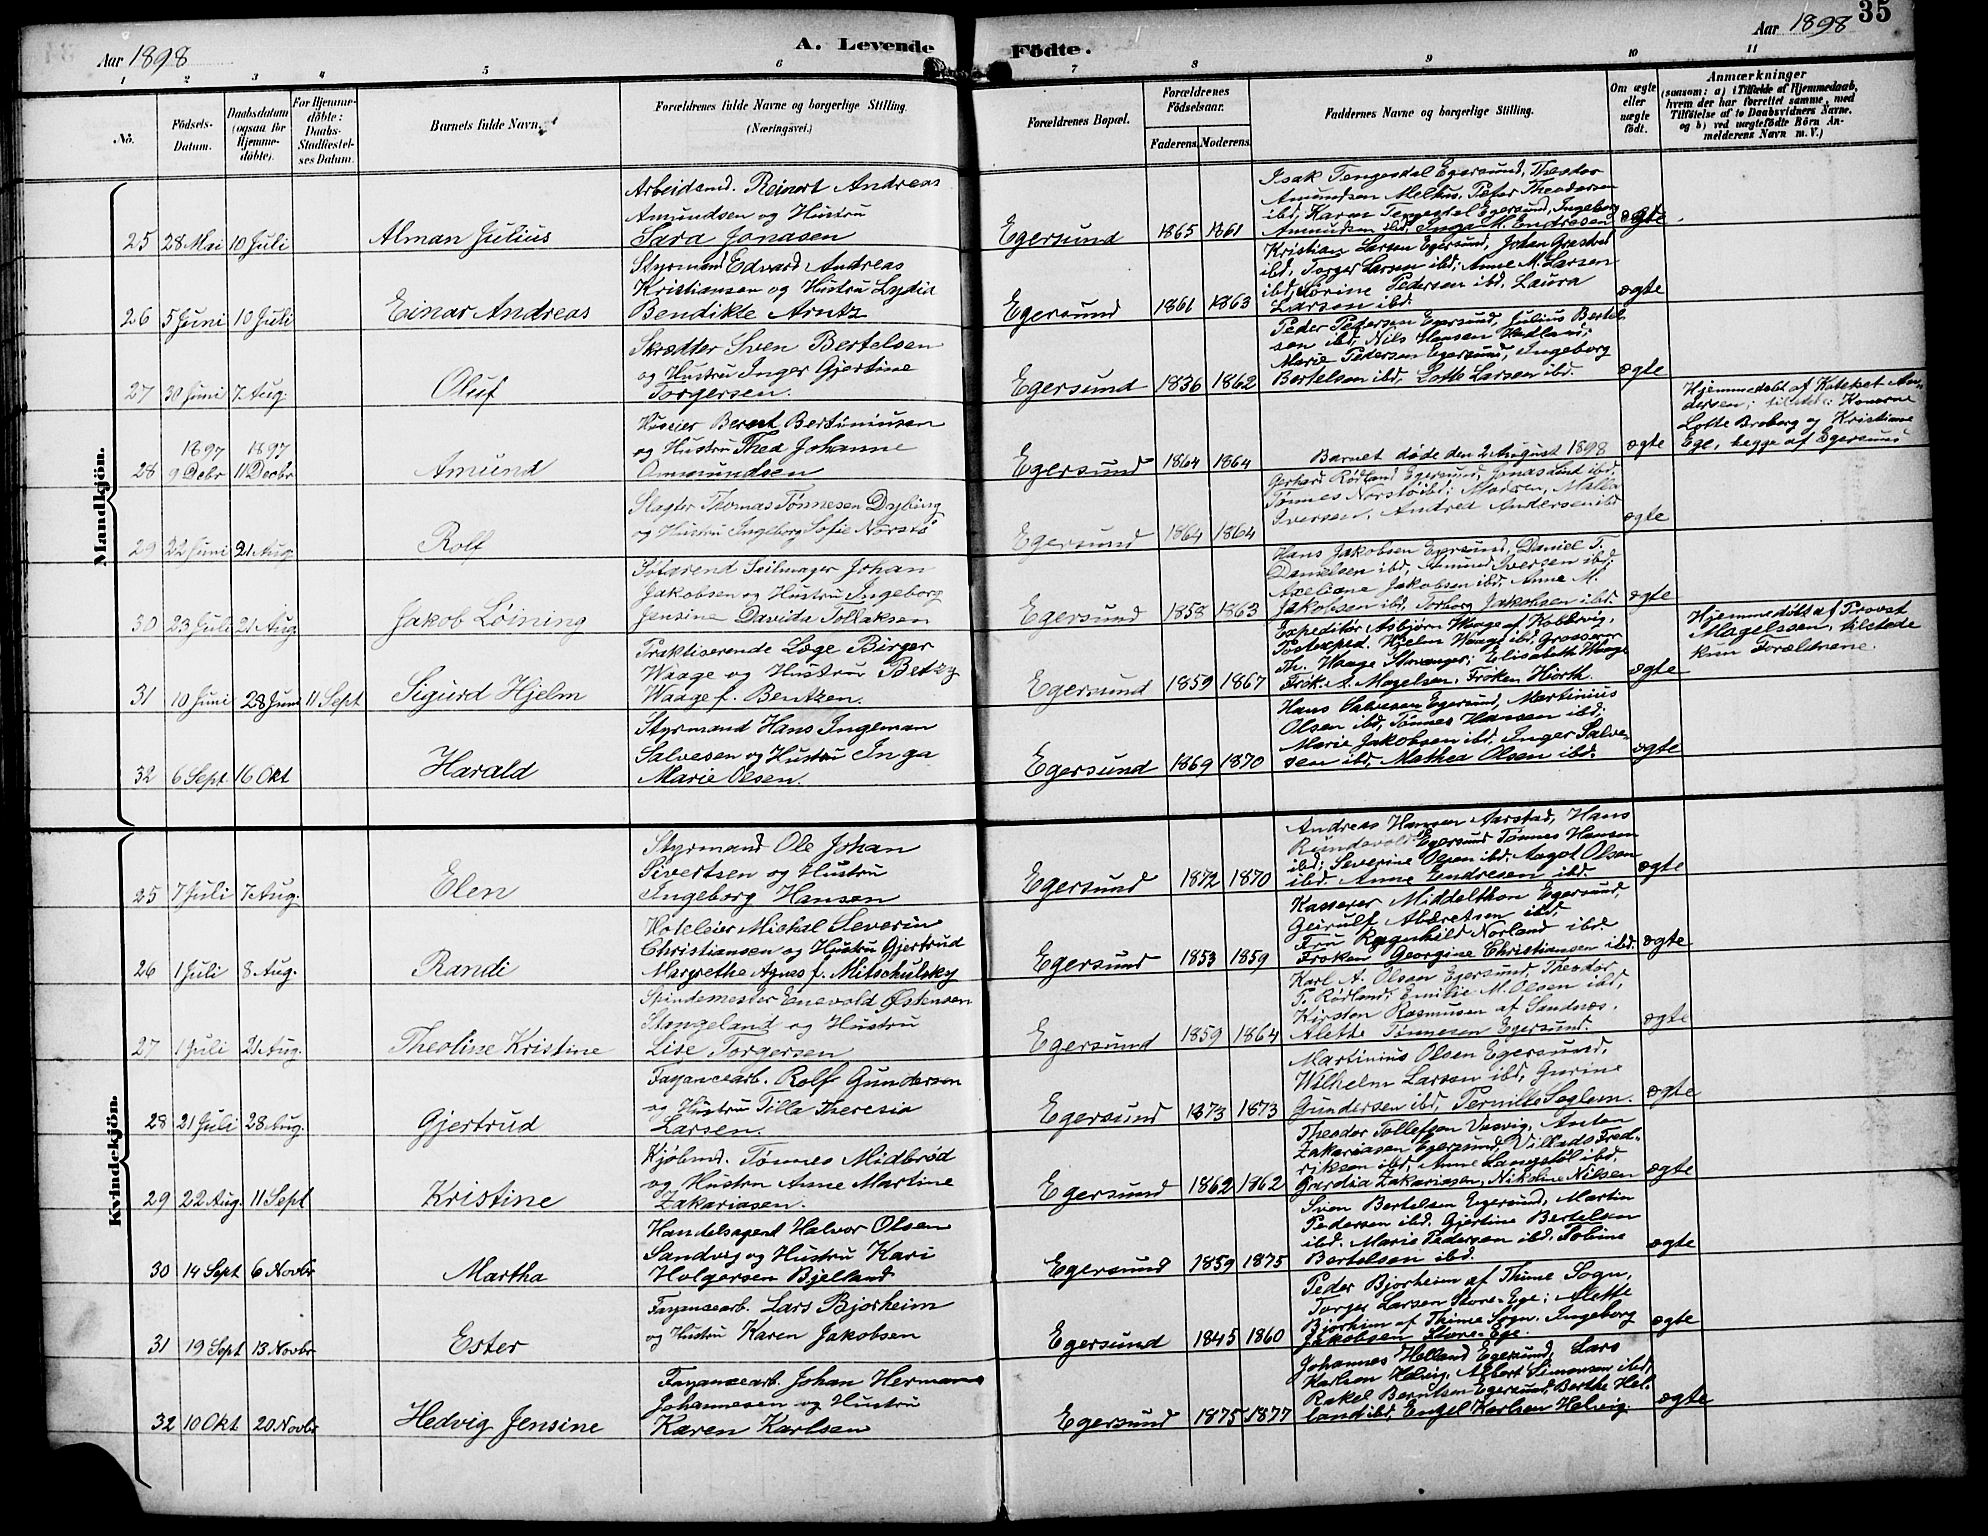 Aar 1898
A. Levende Födte.
Aar 1898
35
1 2 3 4 5 6 7 8 9 10 11
No.
Födsels-Datum.
Daabsdatum (ogsaa for Hjemme-döbte).
For Hjemme-döbte: Daabs-Stadfæstel-ses Datum.
Barnets fulde Navn.
Forældrenes fulde Navne og borgerlige Stilling. (Næringsvei.)
Forældrenes Bopæl.
Forældrenes Födselsaar.
Faderens. Moderens.
Faddernes Navne og borgerlige Stilling.
Om ægte eller uægte födt.
Anmærkninger
(saasom: a) i Tilfælde af Hjemmedaab,
hvem der har forrettet samme, med
Tilföielse af to Daabsvidners Navne.
og b) ved uægtefödte Börn An-
melderens Navn m. V.)
Mandkjön.
25 28 Mai 10 Juli Alman Julius
Arbeidsmd. Reinert Andreas
Amundsen og Hustru
Sara Jonasen
Egersund 1865 1861
Isak Tengesdal Egersund, Theodor
Amundsen Melhus, Peter Theodorsen
ibd, Karen Tengesdal Egersund, Ingeborg
Amundsen ibd, Inga M. Endresen
ægte
26 5 Juni 10 Juli Einar Andreas
Styrmand Edvard Andreas
Kristiansen og Hustru Lydia
Bendikte Arntz
Egersund 1861 1863
Kristian Larsen Egersund, Johan
ibd, Torger Larsen ibd, Anne M. Larsen
ibd, Serine Pedersen ibd, Laura
Larsen ibd.
ægte
27 30 Juni 7 Aug. Oluf
Skrædder Sven Bertelsen
og Hustru Inger Gjertine
Torgersen.
Egersund 1836 1862
Peder Pedersen Egersund, Julius Bertel
sen ibd, Nils Hansen Hadland,
Marie Pedersen Egersund, Ingeborg
Bertelsen ibd, Lotte Larsen ibd.
ægte
28 1897 9 Debr 1897 11 Decbr Amund
Husier Berent Bertiniusen
og Hustru Thea Johanne
Omundsen
Egersund 1864 1864
Barnet døde den 2 August 1898
ægte
Hjemmedøbt af Kateket An-
dersen; tilsted: Konerne
Lotte Broberg og Kristiane
Ege, begge af Egersund
29 22 Juni 21 Aug. Rolf
Slagter Thomas Tønnesen Dybing
og Hustru Ingeborg Sofie Norstø
Egersund 1864 1864
Gerhard Rødland Egersund, Jonas Lind ibd,
Tønnes Norstø ibd; Madsen, Malla
Iversen, Andrea Andersen ibd
ægte
30 23 Juli 21 Aug Jakob Løining
Søfarend Seilmager Johan
Jakobsen og Hustru Ingeborg
Jensine Davida Tollaksen
Egersund 1858 1863
Hans Jakobsen Egersund, Daniel T.
Danielsen ibd, Amund Iversen ibd;
Axeliane Jakobsen ibd, Anne M.
Jakobsen ibd, Torborg Jakobsen ibd.
ægte
31 10 Juni 28 Juni 11 Sept Sigurd Hjelm
Praktiserende Læge Birger
Waage og Hustru Betzy
Waage f. Bentzen.
Egersund 1859 1867
Expeditør Asbjørn Waage af Kobbvig,
Postexped. Hjelm Waage ibd, Grosserer
Th. Waage Stavanger; Elisabeth Waage
Frøk. A. Magelsen, Frøken Hiorth.
ægte
Hjemmedøbt af Provst
Magelssen, tilstede
kun Forældrene.
32 6 Sept 16 Okt Harald
Styrmand Hans Ingeman
Salvesen og Hustru Inga
Marie Olsen.
Egersund 1869 1870
Hans Salvesen Egersund, Martinius
Olsen ibd, Tønnes Hansen ibd,
Marie Jakobsen ibd, Inger Salve
sen ibd, Mathea Olsen ibd.
ægte
Kvindekjön.
25 7 Juli 7 Aug. Elen
Styrmand Ole Johan
Sivertsen og Hustru
Ingeborg Hansen
Egersund 1872 1870
Andreas Hansen Aarstad, Hans
Rundevold Egersund Tønnes Hansen
ibd; Severine Olsen ibd, Aagot Olsen
ibd. Anne Endresen ibd
ægte
26 1 Juli 8 Aug. Randi
Hoteleier Michal Severin
Christiansen og Hustru Gjertrud
Margrethe Agnes f. Mitschulsky
Egersund 1853 1859
Kasserer Middelthon Egersund,
Geirulf Albretsen ibd,
Fru Ragnhild Norland ibd.
Frøken Georgine Christiansen ibd.
ægte
27 1 Juli 21 Aug. Theoline Kristine
Spindemester Enevold Østensen
Stangeland og Hustru
Lise Torgersen
Egersund 1859 1864
Karl A. Olsen Egersund, Theodor
T. Rødland; Emilie M. Olsen ibd,
Kirsten Rasmusen af Sandnæs,
Alette Tønnesen Egersund.
ægte
28 21 Juli 28 Aug. Gjertrud
Fayancearb. Rolf Gundersen
og Hustru Tilla Theresia
Larsen.
Egersund 1873 1873
Martinius Olsen Egersund,
Wilhelm Larsen ibd, Gurine
Gundersen ibd, Pernille Seglem.
ægte
29 22 Aug. 11 Sept Kristine
Kjøbmd. Tønnes Midbrød
og Hustru Anne Martine
Zakariasen.
Egersund 1862 1862
Theodor Tollefsen, Anton
Zakariasen Egersund, Villads Fred-
riksen ibd, Anne Langstøl ibd,
Gardia Zakariasen, Nikoline Nilsen
ægte
30 14 Sept 6 Novbr Martha
Handelsagent Halvor Olsen
Sandvig og Hustru Kari
Holgersen Bjelland
Egersund 1859 1875
Sven Bertelsen Egersund, Martin
Pedersen ibd. Gjertine Bertelsen
ibd. Marie Pedersen ibd. Tobine
Bertelsen ibd.
ægte
31 19 Sept 13 Novbr Ester
Fayancearb. Lars Bjorheim
og Hustru Karen Jakobsen
Egersund 1845 1860
Peder Bjorheim af Thime Sogn,
Torger Larsen Store-Ege; Alette
Bjorhim af Thime Sogn. Ingeborg
Jakobsen Store-Ege.
ægte
32 10 Okt 20 Novbr Hedvig Jensine
Fayancearb. Johan Herman
Johannesen og Hustru
Karen Karlsen
Egersund 1875 1877
Johannes Helland Egersund, Lars
Karlsen Helvig, Albert Simonsen ibd,
Rakel Berntsen Egersund, Berthe Hel-
land ibd, Engel Karlsen Helvig.
ægte